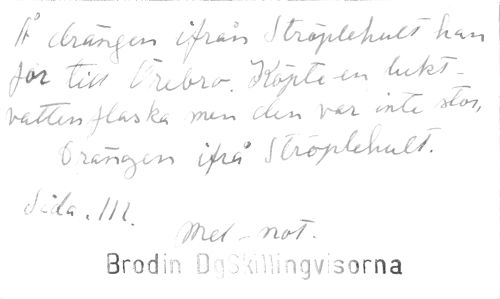 Å drängen ifrån Ströplehult han
for till Örebro. Köpte en lukt-
vattenflaska men den var inte stor,
Drängen ifrå Ströplehult.
Sida. 111.
Mel-not.
Brodin DgSkillingvisorna